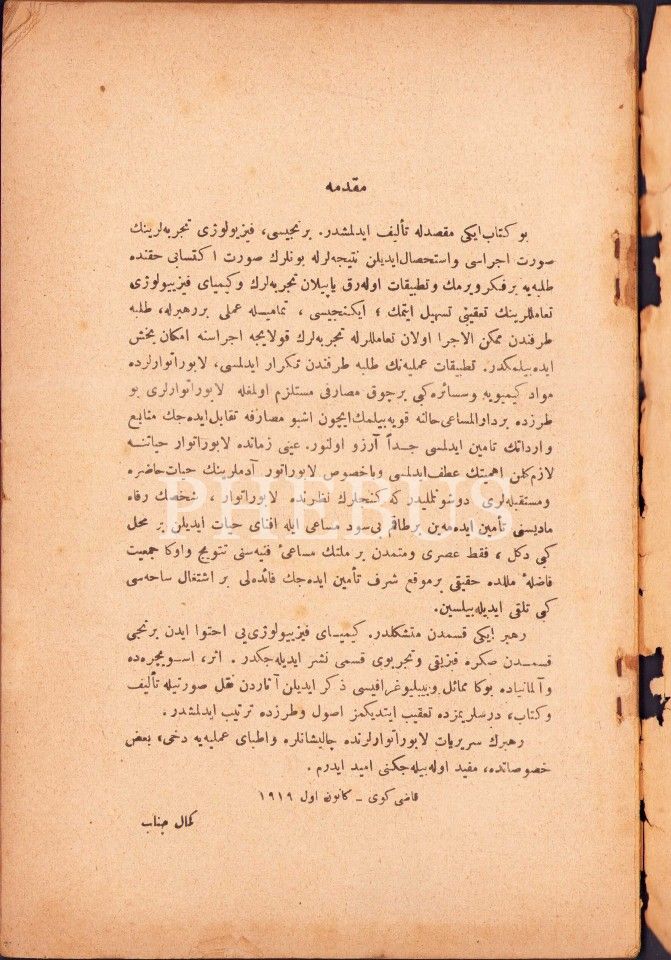 مقدمه
بو کتاب ایکی مقصدله تألیف ایدلمشدر. برنجیسی، فیزیولوژی تجربه‌لرینك
صورت اجراسی واستحصال ایدیلن نتیجه‌لرله بونلرك صورت اکتسابی حقنده
طلبه‌یه برفکر ویرمك وتطبیقات اوله‌رق یاپیلان تجربه‌لرك وکیمیای فیزیولوژی
تعامللرینك تعقیبنی تسهیل ایتمك ؛ ایکنجیسی ، تمامیسله عملی بررهبرله، طلبه
طرفندن ممکن الاجرا اولان تعامللرله تجربه‌لرك قولایجه اجراسنه امکان بخش
ایده‌بیلمکدر. تطبیقات عملیه‌نك طلبه طرفندن تکرار ایدلمسی، لابوراتوارلرده
مواد کیمیویه وسسائره‌کبی برچوق مصارفی مستلزم اولمغله لابوراتوارلری بو
طرزده بردارالمساعی حالنه قویه‌بیلمك‌ایچون اشبو مصارفه تقابل‌ایده‌جك منابع
و وارداتك تامین ایدلمسی جداً آرزو اولنور. عینی زمانده لابوراتوار حیاتنه
لازم‌کلن اهمیتك عطف‌ایدلمسی وباخصوص لابوراتور آدملرینك حیات حاضره
ومستقبله‌لری دوشونلملیدر که کنجلرك نظرنده لابوراتوار ، شخصك رفاه
مادیسنی تأمین ایده‌مه‌ین برطاقم بی‌سود مساعی ایله افنای حیات ایدیلن بر محل
کبی دکل ، فقط عصری ومتمدن بر ملتك مساعیٔ فنیه‌سنی تتویج واوکا جمعیت
فاضلۀ مللده حقیقی برموقع شرف تأمین ایده‌جك فائده‌لی بر اشتغال ساحه‌سی
کبی تلقی ایدیله‌بیلسین.
رهبر ایکی قسمدن متشکلدر. کیمیای فیزیولوژی‌یی احتوا ایدن برنجی
قسمدن صکره فیزیقی وتجربوی قسمی نشر ایدیله‌جکدر . اثر، اسویچره‌ده
وآلمانیاده بوکا مماثل وبیبلیوغرافیسی ذکر ایدیلن آثاردن نقل صورتیله تألیف
وکتاب، درسلریمزده تعقیب ایتدیکمز اصول وطرزده ترتیب ایدلمشدر.
رهبرك سریریات لابوراتوارلرنده چالیشانلره واطبای عملیه‌یه دخی، بعض
خصوصاتده، مفید اوله‌بیله‌جکنی امید ایدرم .
قاضی کوی ـ کانون اول ١٩١٩
کمال جناب
PHEBUS